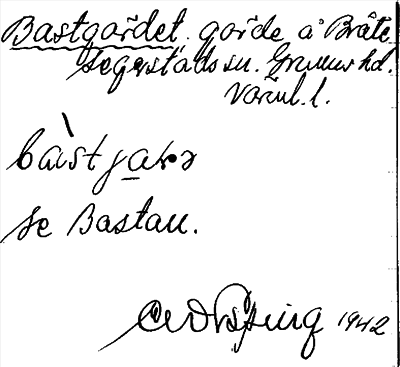 Bastgärdet. gärde å Bråte,
Segerstads sn. Grums hd.
Värml. l.
bàstjaɽə
se Bastan.
1942